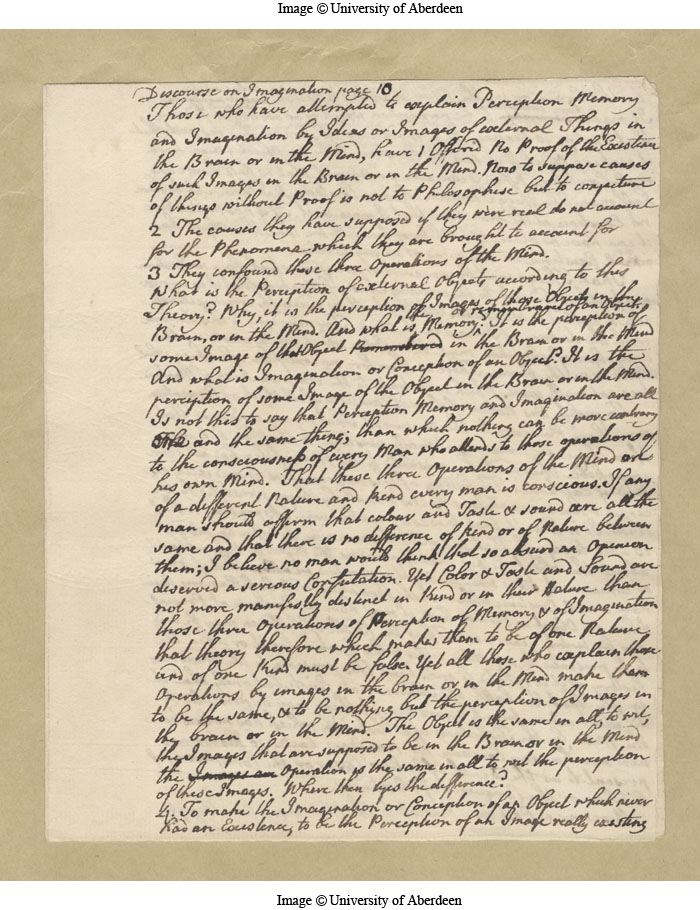 Image © University of Aberdeen
Discourse on Imagination page 10
Those who have attempted to explain Perception Memory
and Imagination by Ideas or Images of external Things in
the Brain or in the Mind, have 1 Offered No Proof of the Existence
of such Images in the Brain or in the Mind. Now to suppose causes
of things without Proof is not to Philosophise but to conjecture
2 The causes they have supposed if they were real do not account
for the Phenomena which they are brought to account for
3 They confound these three Operations of the Mind.
What is the Perception of external Objects according to this
Theory? Why, it is the perception of Images of those Objects in the
Brain, or in the Mind. And what is the Memory, or remembrance of an Object? It is the perception of
some Image of that Object Remembered in the Brain or in the Mind
And what is Imagination or Conception of an Object? It is the
perception of some Image of the Object in the Brain or in the Mind.
Is not this to say that Perception Memory and Imagination are all
One and the same thing; than which nothing can be more contrary
to the consciousness of every Man who attends to those operations of
his own Mind. That these three Operations of the Mind are
of a different Nature and kind every man is conscious. If any
man should affirm that colour and Taste & sound are all the
same and that there is no difference of kind or of Nature between
them; I believe no man would think that so absurd an Opinion
deserved a serious Confutation. Yet Color & Taste and Sound are
not more manifestly distinct in Kind or in their Nature than
those three Operations of Perception of Memory & of Imagination
that theory therefore which makes them to be of one Nature
and of one Kind must be false. Yet all those who explain these
Operations by images in the brain or in the Mind make them
to be the same, & to be nothing but the perception of Images in
the brain or in the Mind. The Object is the same in all, to wit,
the Images that are supposed to be in the Brain or in the Mind
the Images are Operation is the same in all to wit the perception
of these Images. Where then lyes the difference?
4. To make the Imagination or Conception of an Object which never
had an Existence, to be the Perception of an Image really existing
Image © University of Aberdeen